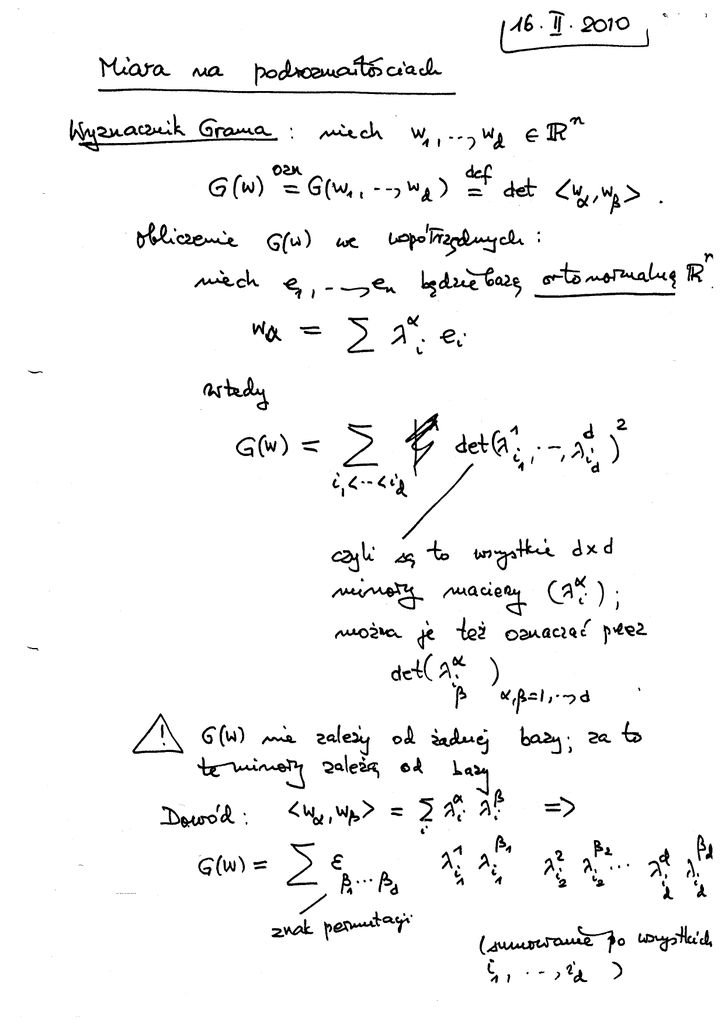 16. II. 2010
Miara na podrozmaitościach
Wyznacznik Grama : niech w₁, .., w_d ∈ ℝⁿ
G(w) =^{ozn} G(w₁, .., w_d) =^{def} det <w_α, w_β> .
obliczenie G(w) we współrzędnych :
niech e₁, ..., e_n będzie bazą ortonormalną ℝⁿ
w_α = ∑ λ^α_i e_i
wtedy
G(w) = ∑_{i₁<...<i_d} det(λ^1_{i₁}, .., λ^d_{i_d})²
czyli są to wszystkie d×d
minory macierzy (λ^α_i) ;
można je też oznaczać przez
det(λ^α_{i_β})_{α,β=1,..,d}
! G(w) nie zależy od żadnej bazy; za to
te minory zależą od bazy
Dowód : <w_α, w_β> = ∑_i λ^α_i λ^β_i =>
G(w) = ∑ ε_{β₁...β_d} λ^1_{i₁} λ^{β₁}_{i₁} λ^2_{i₂} λ^{β₂}_{i₂} ... λ^d_{i_d} λ^{β_d}_{i_d}
znak permutacji
(sumowanie po wszystkich
i₁, .., i_d )